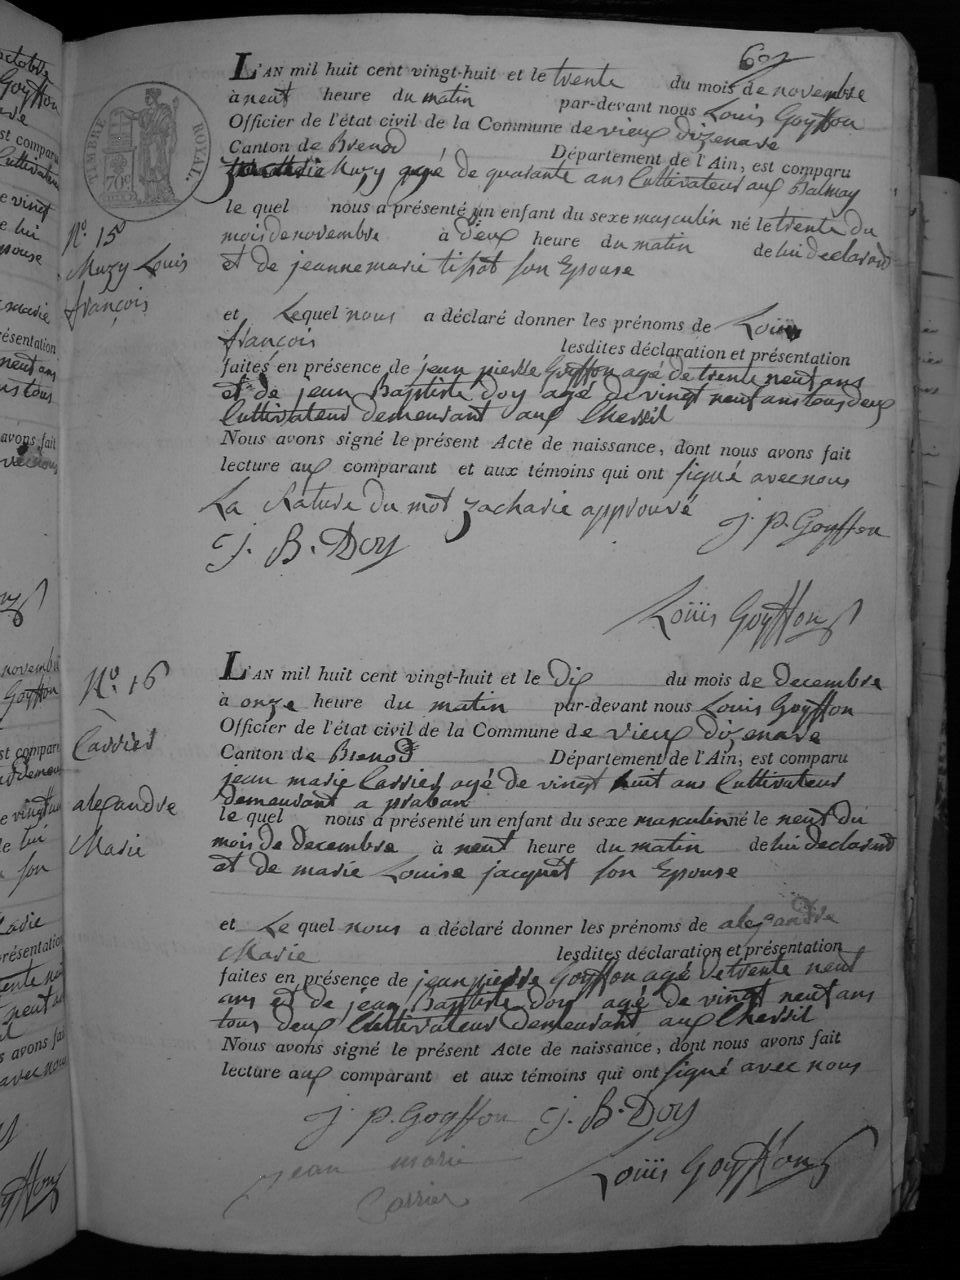 602
L'AN mil huit cent vingt-huit et le trente du mois de novembre
à neuf heure du matin par-devant nous Louis Goyffon
Officier de l'état civil de la Commune de vieux dizenave
Canton de Brenod Département de l'Ain, est comparu
zacharie Muzy agé de quarante ans Cultivateur aux Balmay
le quel nous a présenté un enfant du sexe masculin né le trente du
mois de novembre à deux heure du matin de lui declarant
et de jeanne marie tissot son Epouse
et Lequel nous a déclaré donner les prénoms de Louis
françois lesdites déclaration et présentation
faites en présence de jean pierre Goyffon agé de trente neuf ans
et de jean Baptiste Doy agé de vingt neuf ans tous deux
Cultivateur demeurant aux Chessil
Nous avons signé le présent Acte de naissance, dont nous avons fait
lecture aux comparant et aux témoins qui ont signé avec nous
La Rature du mot zacharie approuvé
J. P. Goyffon
J. B. Doy
Loüis Goyffon
TIMBRE ROYAL.
70c
No. 15
Muzy Louis
françois
L'AN mil huit cent vingt-huit et le Dix du mois de decembre
à onze heure du matin par-devant nous Louis Goyffon
Officier de l'état civil de la Commune de vieux dizenave
Canton de Brenod Département de l'Ain, est comparu
jean marie Carrier agé de vingt huit ans Cultivateur
demeurant a praban
le quel nous a présenté un enfant du sexe masculin né le neuf du
mois de decembre à neuf heure du matin de lui declarant
et de marie Louise jacquet son Epouse
et Le quel nous a déclaré donner les prénoms de alexandre
Marie lesdites déclaration et présentation
faites en présence de jean pierre Goyffon agé de trente neuf
ans et de jean Baptiste Doy agé de vingt neuf ans
tous deux Cultivateur demeurant aux Chessil
Nous avons signé le présent Acte de naissance, dont nous avons fait
lecture aux comparant et aux témoins qui ont signé avec nous
J. P. Goyffon J. B. Doy
jean marie
Carrier
Loüis Goyffon
No. 16
Carrier
alexandre
Marie